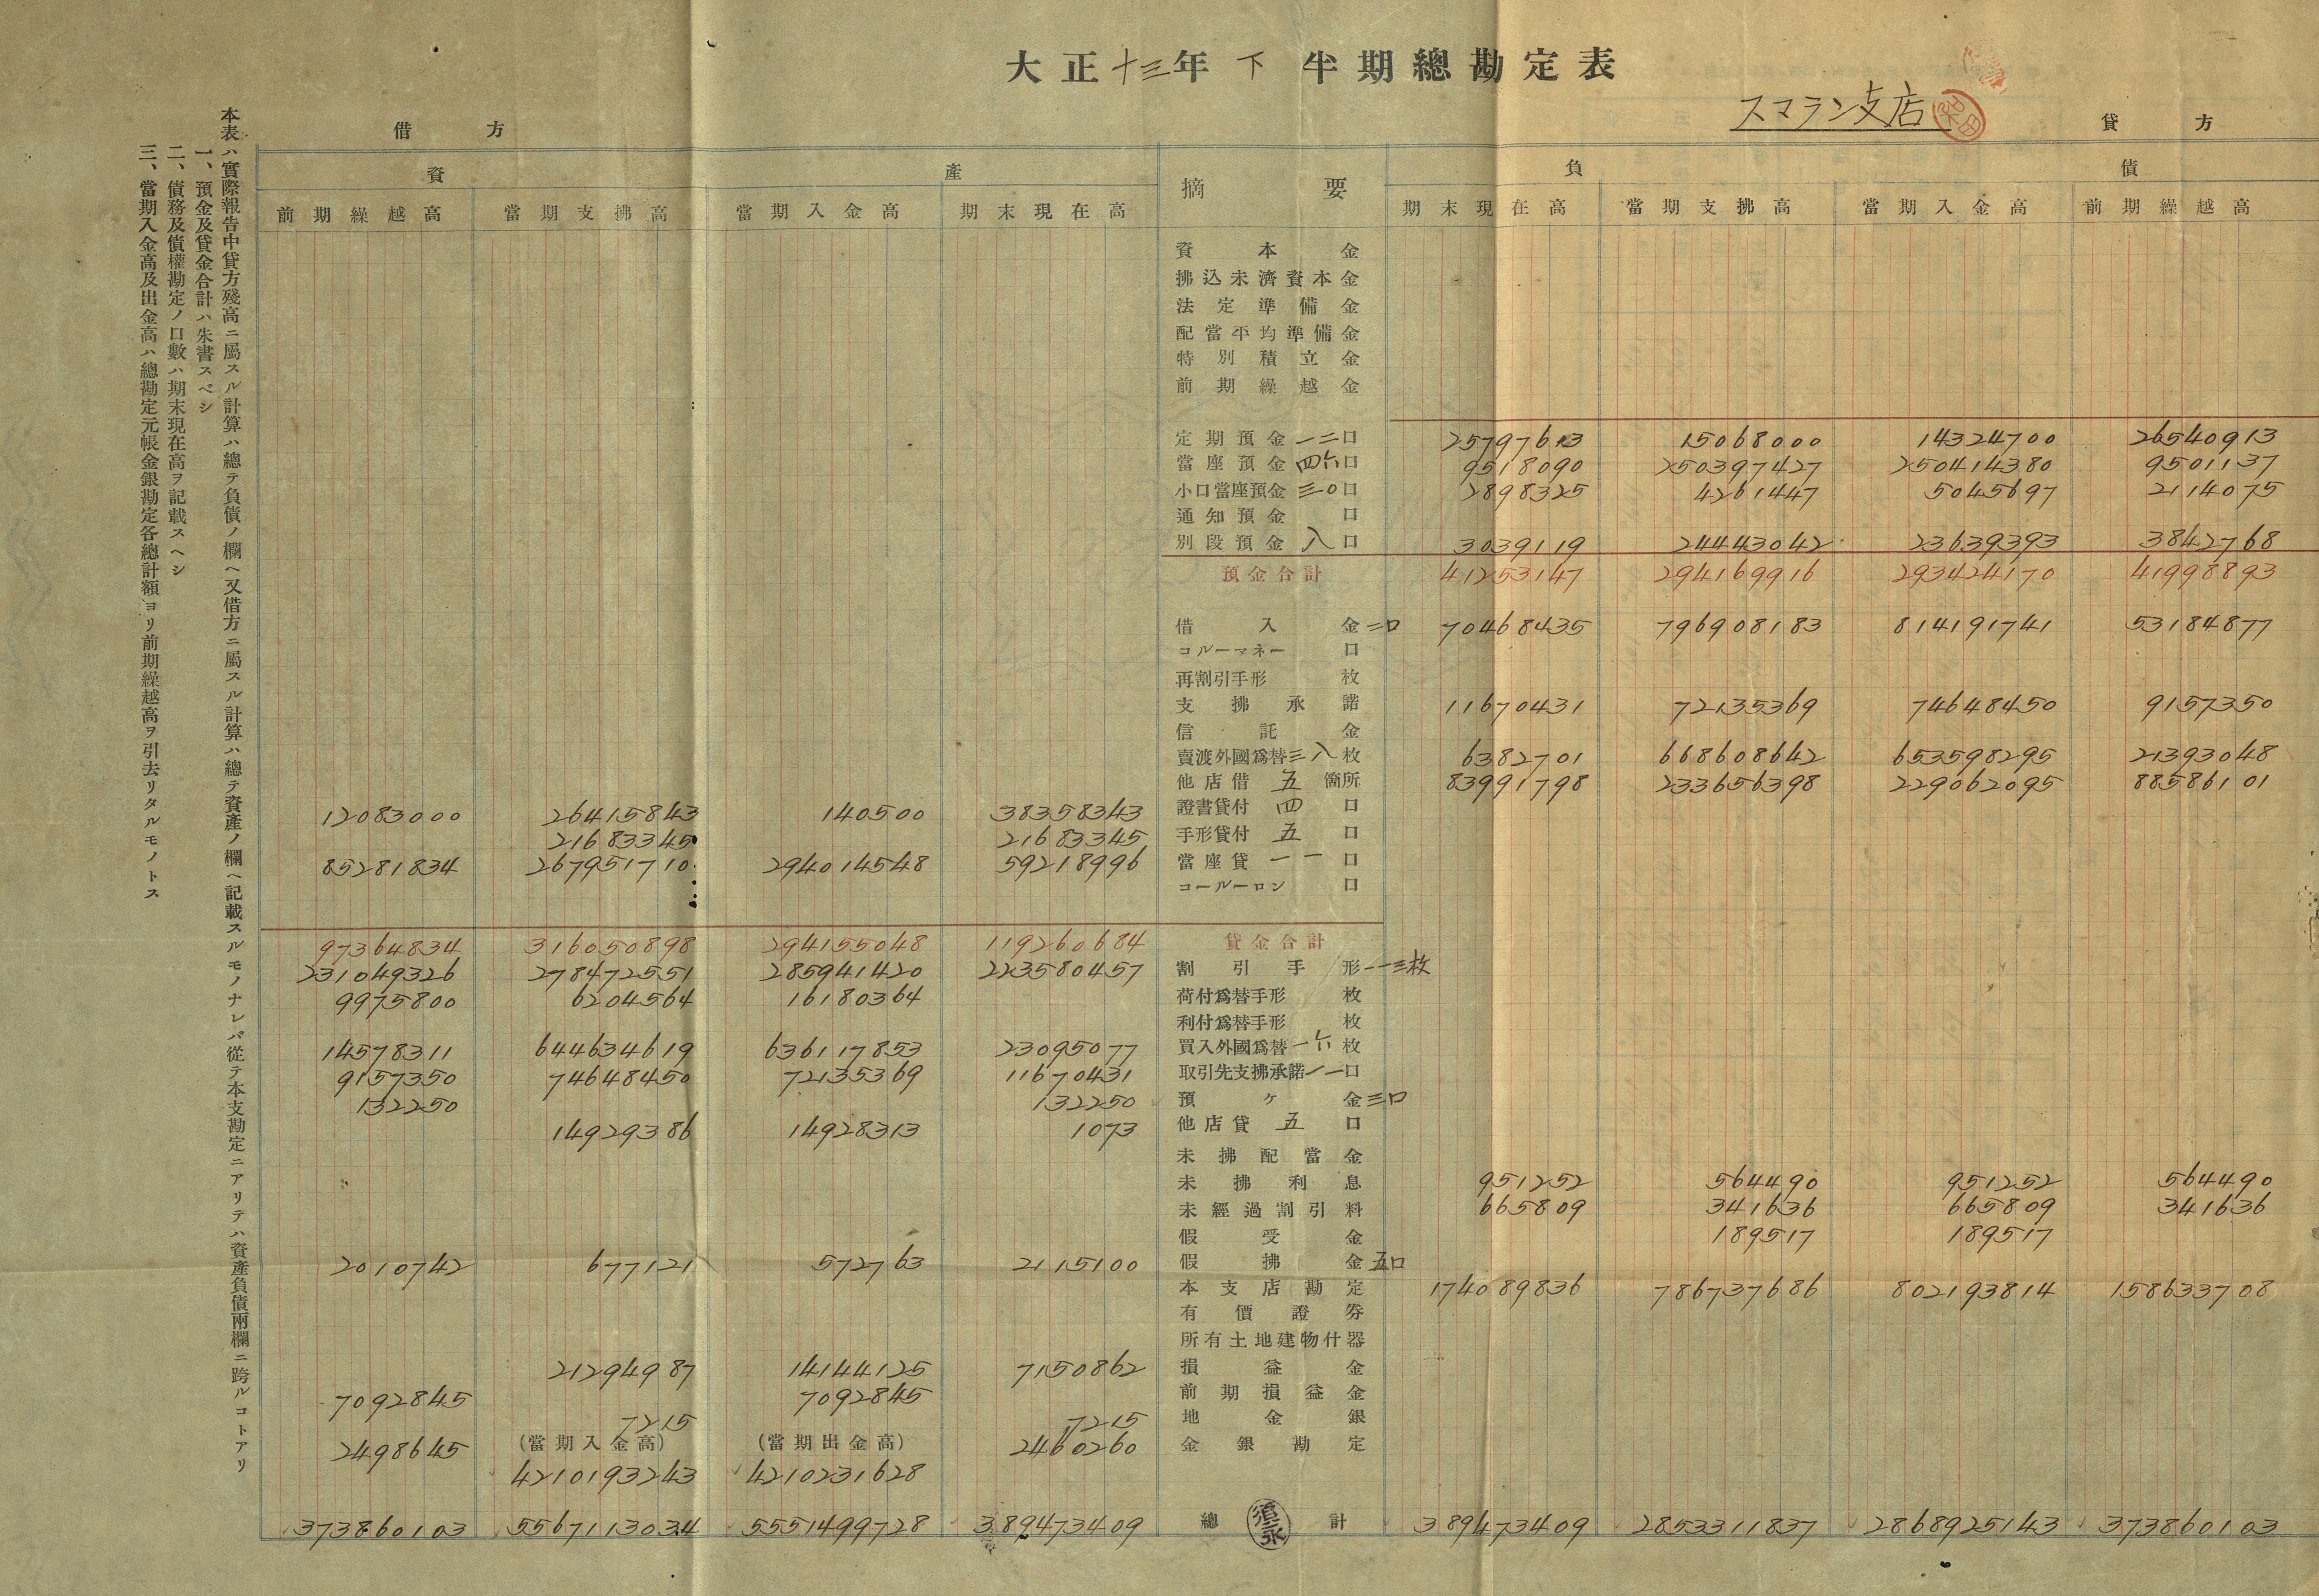 大正十三年下半期總勘定表
スマラン支店
借方 貸方
資產 摘要 負債
前期繰越高 當期支拂高 當期入金高 期末現在高 期末現在高 當期支拂高 當期入金高 前期繰越高
資本金
拂込未濟資本金
法定準備金
配當平均準備金
特別積立金
前期繰越金
定期預金 一二口 25797613 15068000 14324700 26540913
當座預金 四六口 9518090 250397427 250414380 9501137
小口當座預金 三〇口 2898325 4261447 5045697 2114075
通知預金 口
別段預金 八口 3039119 24443042 23639393 3842768
預金合計 41253147 294169916 293424170 41998893
借入金 二口 70468435 796908183 814191741 53184877
コルーマネー 口
再割引手形 枚
支拂承諾 11670431 72135369 74648450 9157350
信託金
賣渡外國爲替 三八枚 6382701 668608642 653598295 21393048
他店借 五箇所 83991798 233656398 229062095 88586101
12083000 26415843 140500 38358343 證書貸付 四口
21683345 21683345 手形貸付 五口
85281834 267951710 294014548 59218996 當座貸 一一口
コールーロン 口
97364834 316050898 294155048 119260684 貸金合計
231049326 278472551 285941420 223580457 割引手形 一一三枚
9975800 6204564 16180364 荷付爲替手形 枚
利付爲替手形 枚
14578311 644634619 636117853 23095077 買入外國爲替 一六枚
9157350 74648450 72135369 11670431 取引先支拂承諾 一一口
132250 132250 預ケ金 三口
14929386 14928313 1073 他店貸 五口
未拂配當金
未拂利息 951252 564490 951252 564490
未經過割引料 665809 341636 665809 341636
假受金 189517 189517
2010742 677121 572763 2115100 假拂金 五口
本支店勘定 174089836 786737686 802193814 158633708
有價證券
所有土地建物什器
21294987 14144125 7150862 損益金
7092845 7092845 前期損益金
7215 7215 地金銀
2498645 (當期入金高) (當期出金高) 2460260 金銀勘定
4210193243 4210231628
373860103 5567113034 5551499728 389473409 總計 389473409 2853311837 2868925143 373860103
本表ハ實際報告中貸方殘高ニ屬スル計算ハ總テ負債ノ欄ヘ又借方ニ屬スル計算ハ總テ資產ノ欄ヘ記載スルモノナレバ從テ本支勘定ニアリテハ資產負債兩欄ニ跨ルコトアリ
一、預金及貸金合計ハ朱書スベシ
二、債務及債權勘定ノ口數ハ期末現在高ヲ記載スヘシ
三、當期入金高及出金高ハ總勘定元帳金銀勘定各總計額ヨリ前期繰越高ヲ引去リタルモノトス